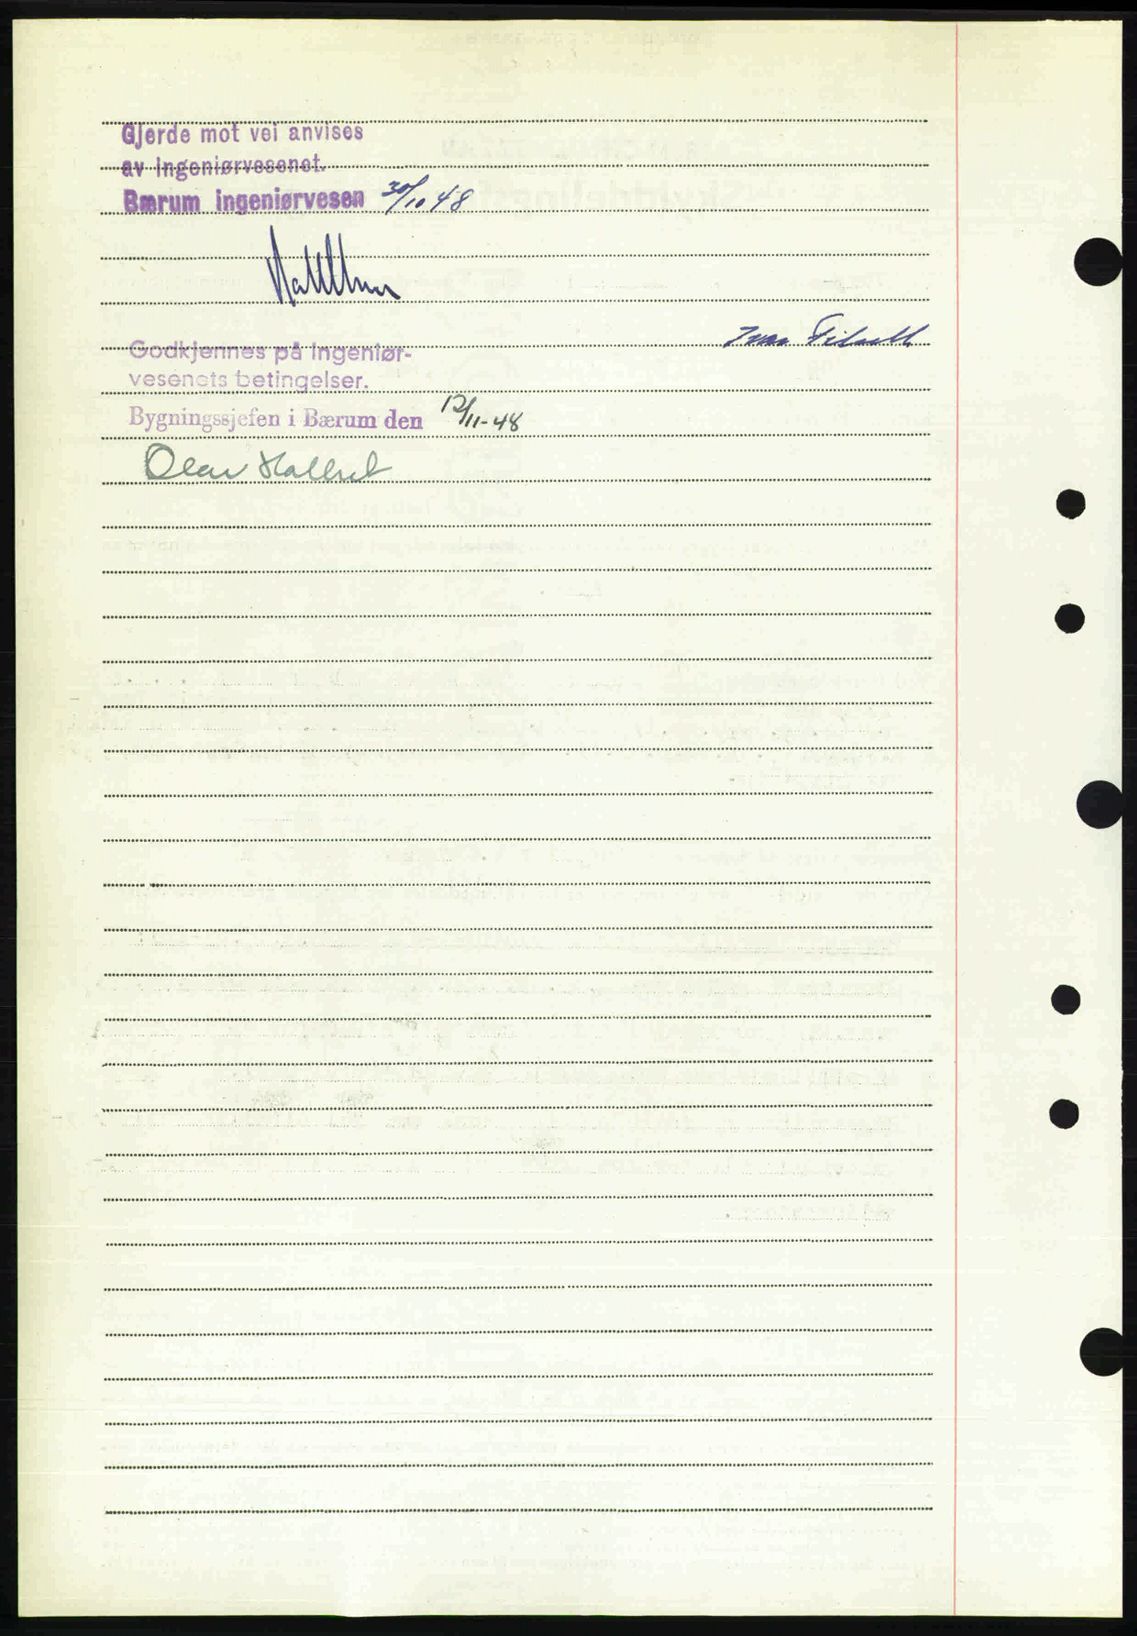 Gjerde mot vei anvises
av Ingeniørvesenet.
Bærum ingeniørvesen 30/10 48
Godkjennes på Ingeniør-
vesenets betingelser.
Bygningssjefen i Bærum den 12/11-48
Olav Hallset